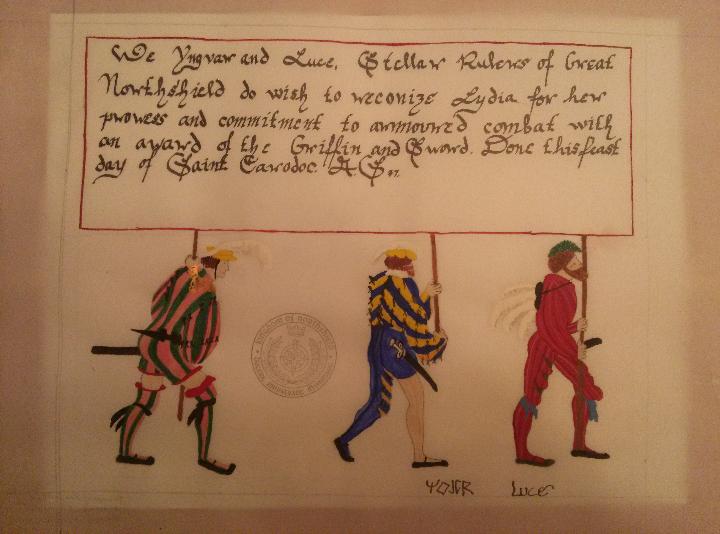 We Yngvar and Luce, Stellar Rulers of Great
Northshield do wish to reconize Lydia for her
prowess and commitment to armoured combat with
an award of the Griffin and Sword. Done this feast
day of Saint Carodoc. A.S.
Luce